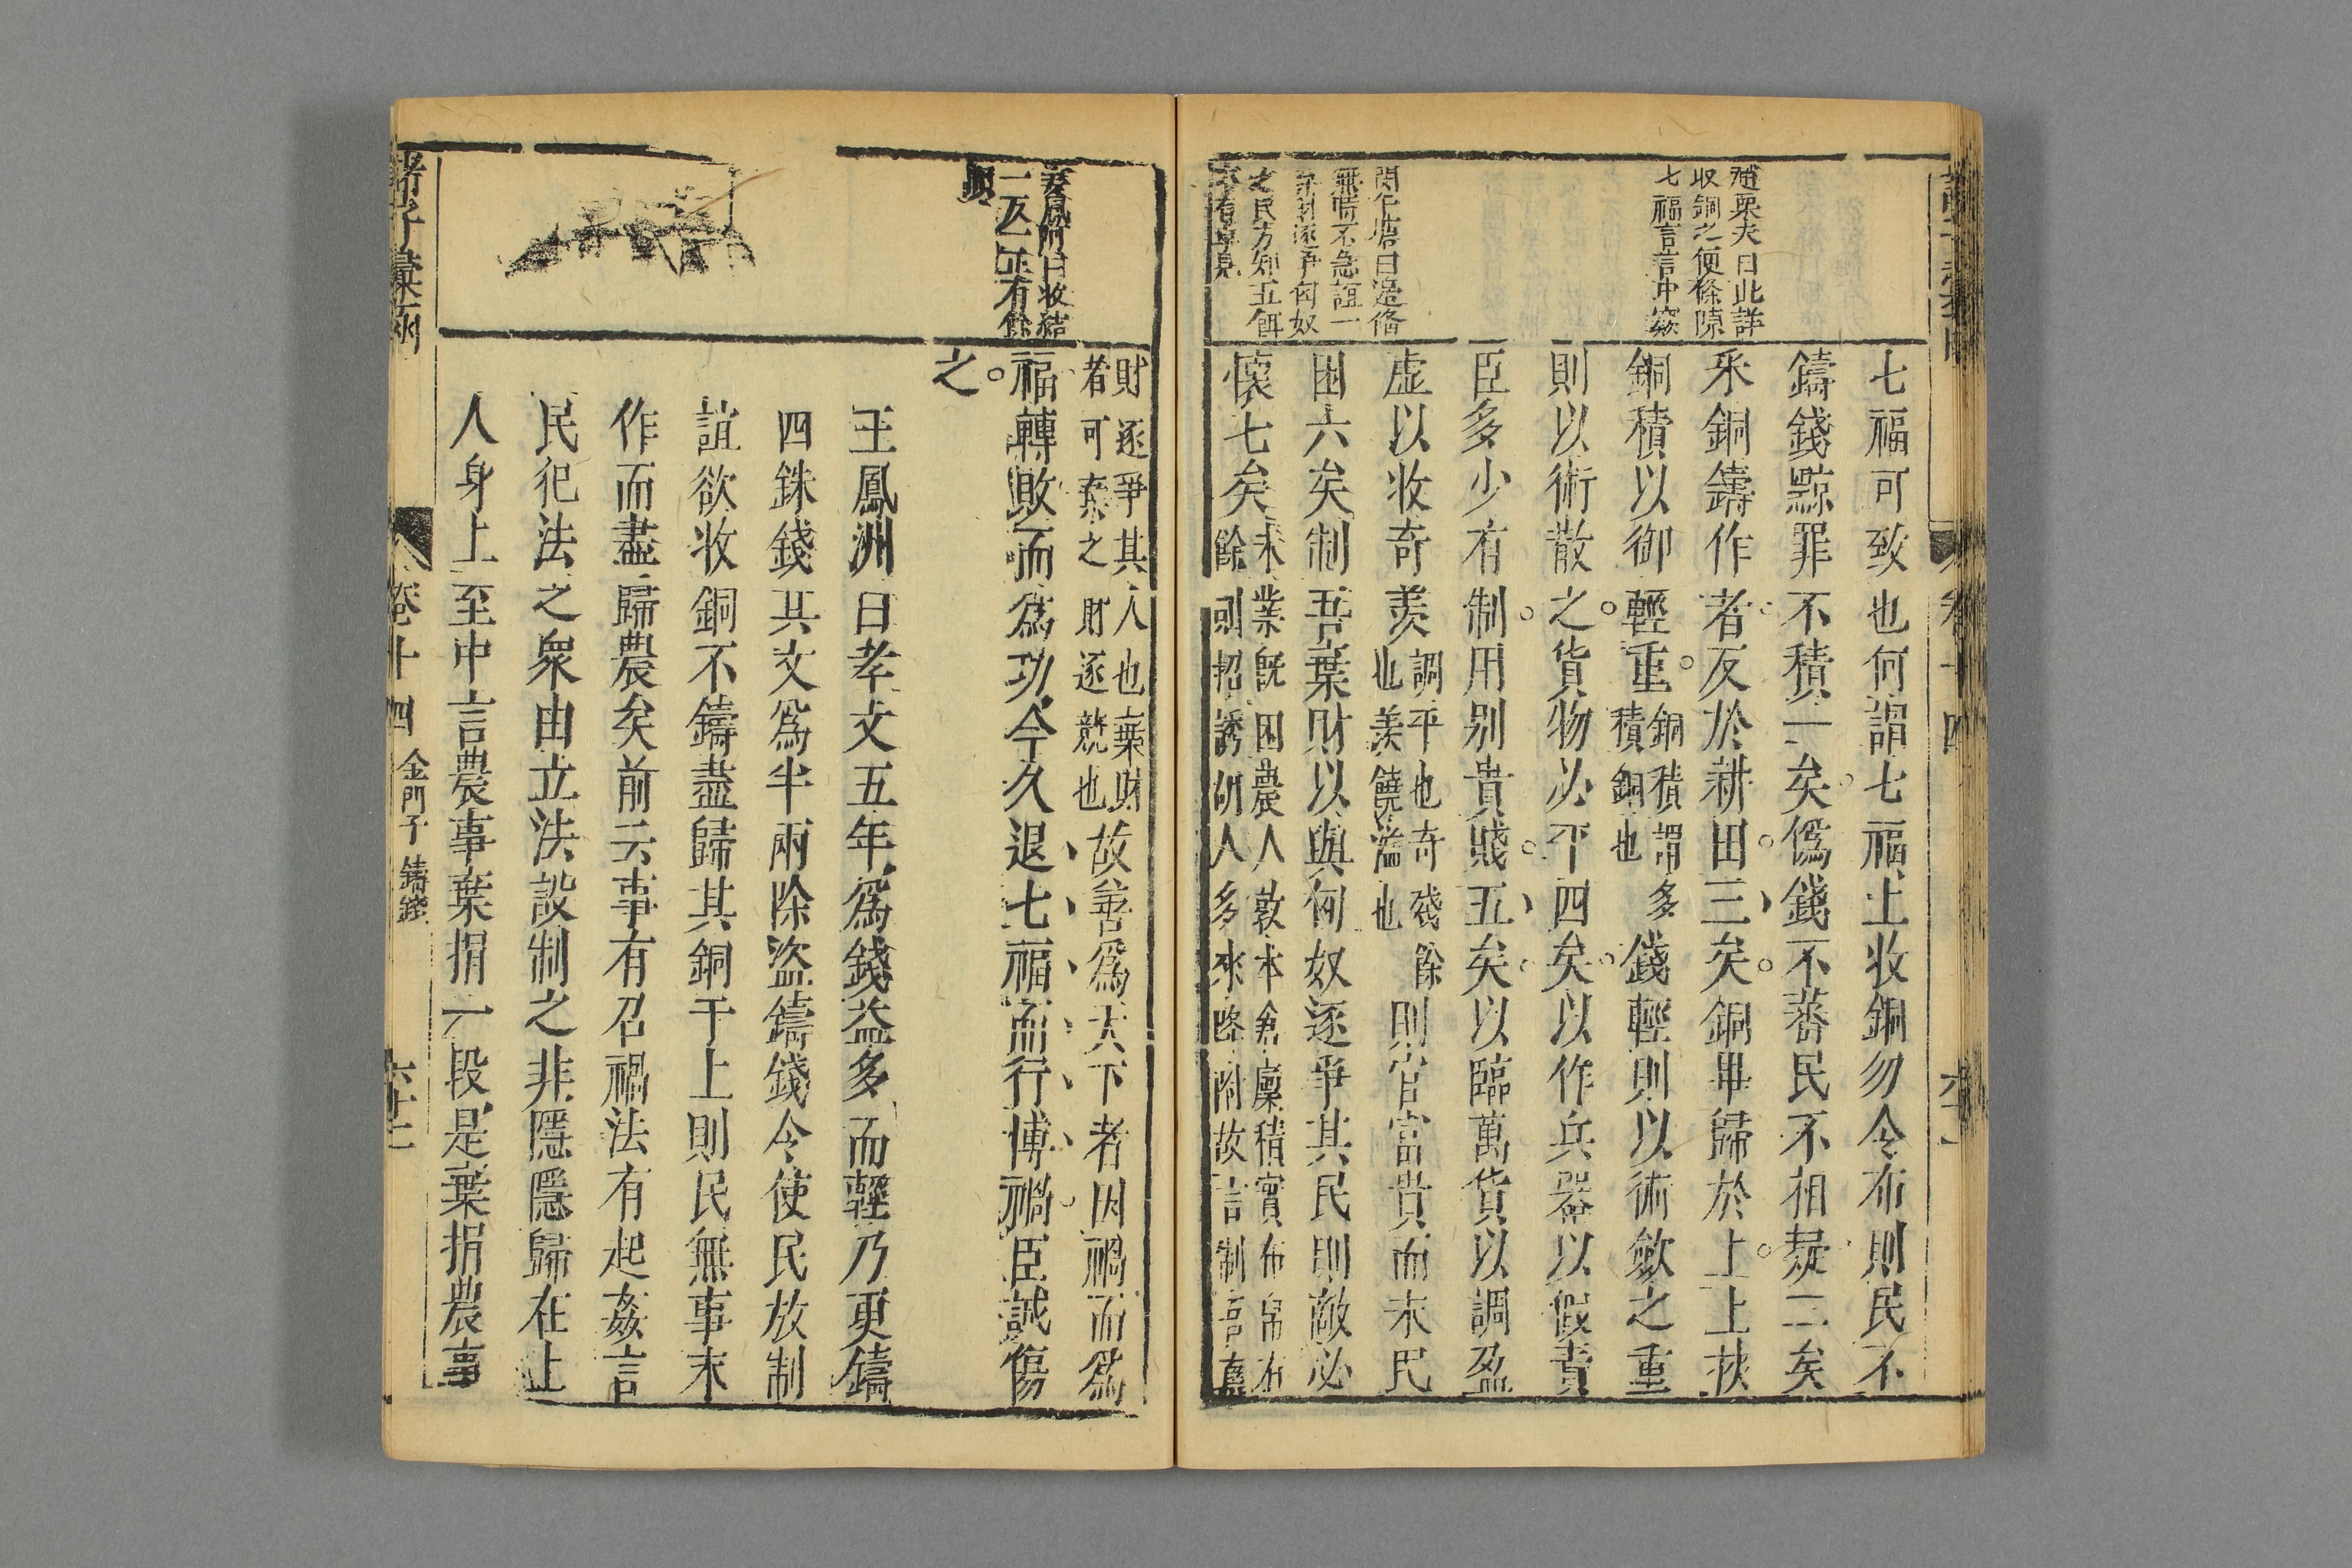 趙栗夫曰此詳
收銅之便條陳
七福言言冲竅
無時不急誼一
七福可致也何謂七福上收銅勿令布則民不
鑄錢黥罪不積一矣僞錢不蕃民不相疑二矣
采銅鑄作者反於耕田三矣銅畢歸於上上挾
銅積以御輕重
銅積謂多
積銅也
錢輕則以術斂之重
則以術散之貨物必平四矣以作兵器以假貴
臣多少有制用别貴賤五矣以臨萬貨以調盈
虛以收奇羨
調平也奇殘餘
也羨饒溢也
則官富貴而末民
困六矣制吾棄財以與匈奴逐爭其民則敵必
懷七矣
末業既困農人敦本倉廩積實布帛有
餘則招誘胡人多來降附故言制吾棄
財逐爭其人也棄財
者可棄之財逐競也
故善爲天下者因禍而爲
福轉敗而爲功今久退七福而行博禍臣誠傷
之
王鳳洲曰孝文五年爲錢益多而輕乃更鑄
四銖錢其文爲半兩除盜鑄錢令使民放制
誼欲收銅不鑄盡歸其銅于上則民無事末
作而盡歸農矣前云事有召禍法有起姦言
民犯法之衆由立法設制之非隱隱歸在上
人身上至中言農事棄捐一段是棄捐農事
諸子彙函
卷十四
金門子
鑄錢
六十二